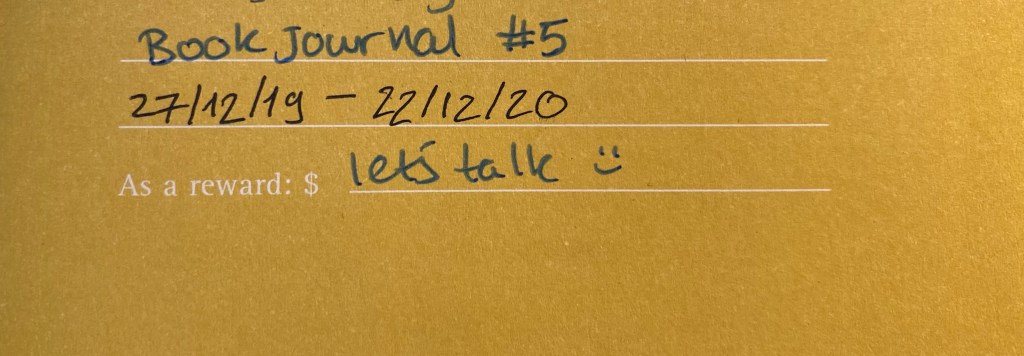 Book Journal #5
27/12/19 – 22/12/20
As a reward: $ let's talk :)